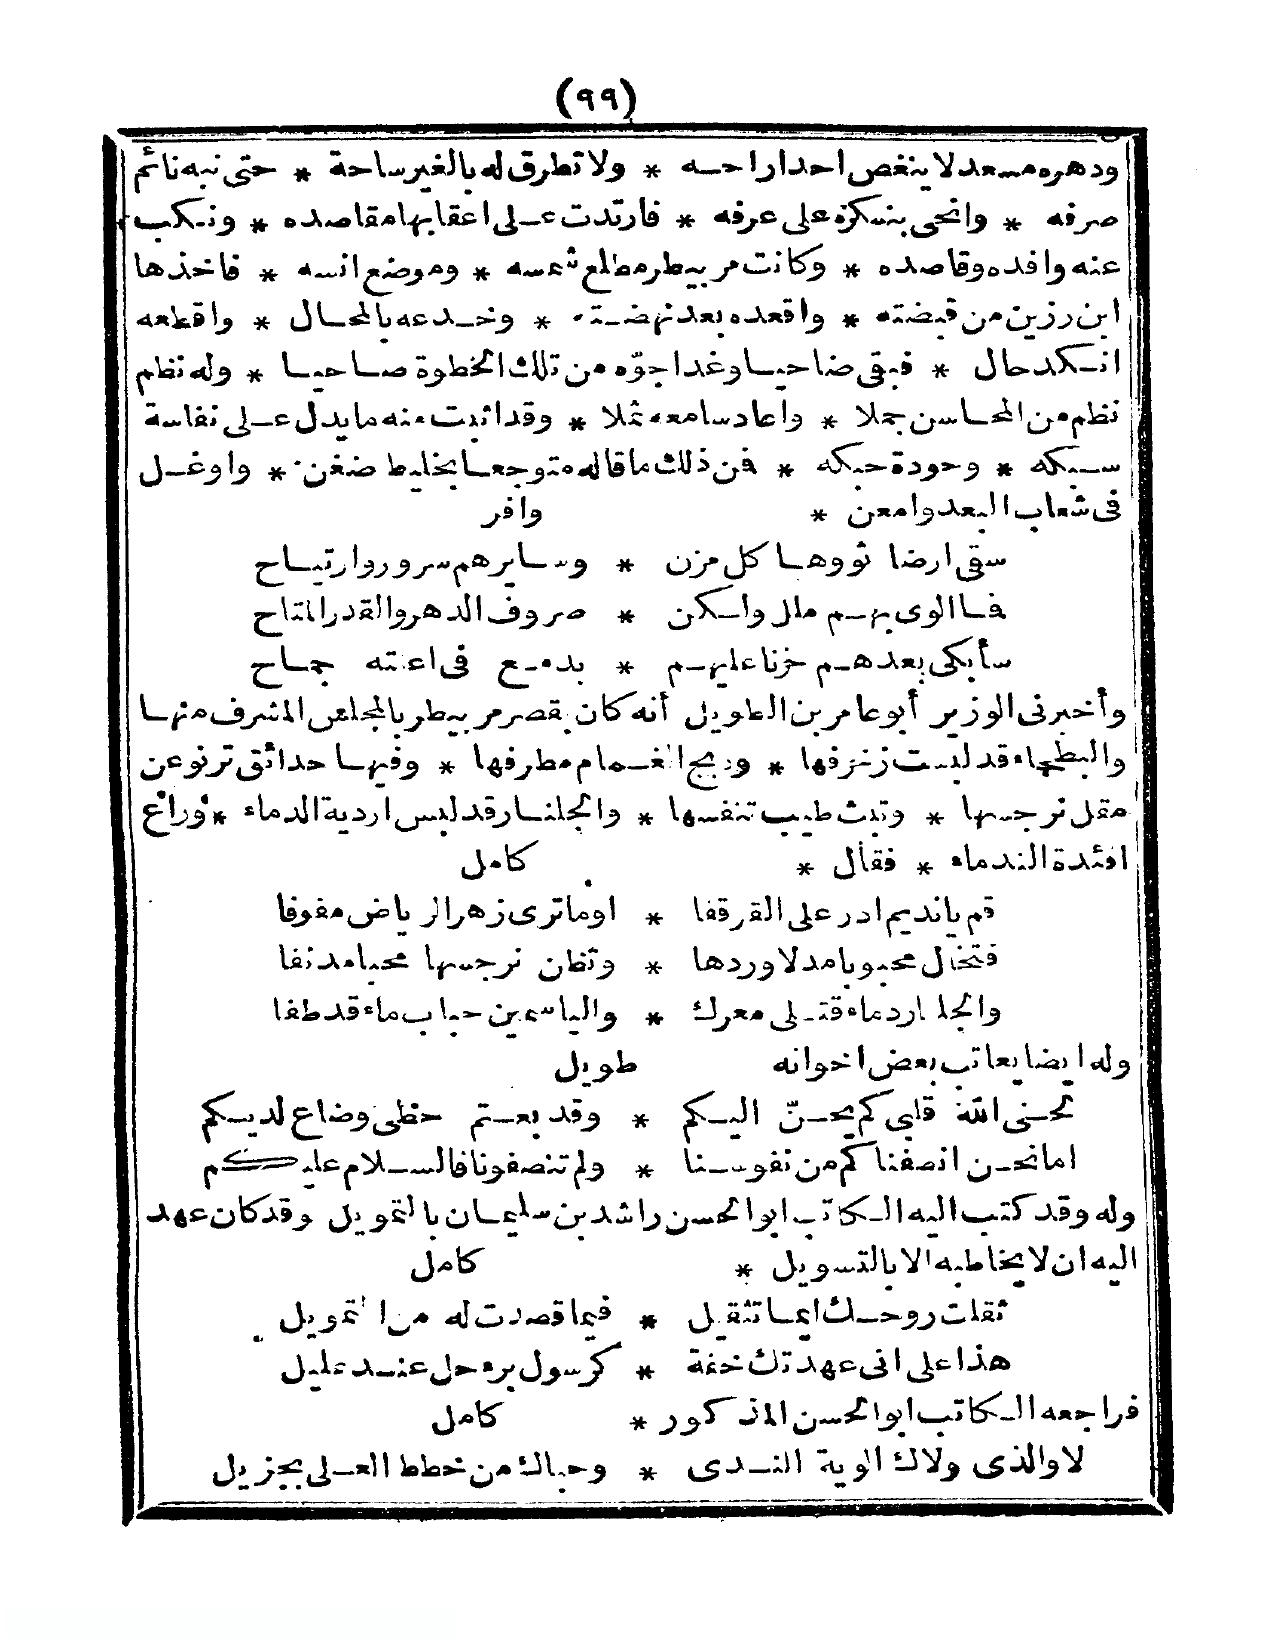 (٩٩)
ودهره مسعد لا ينغص احدا راحه * ولا تطرق له بالغير ساحة * حتى نبه نائم
صرفه * وانحى بنكره على عرفه * فارتدت على اعقابها مقاصده * ونكب
عنه وافده وقاصده * وكانت مربيطر مطلع شمسه * وموضع انسه * فاخذها
ابن رزين من قبضته * واقعده بعد نهضته * وخدعه بالمحال * واقطعه
انكد حال * فبقى ضاحيا وغدا جوّه من تلك الخطوة صاحيا * وله نظم
نظم من المحاسن جملا * واعاد سامعه ثملا * وقد اثبت منه ما يدل على نفاسة
سبكه * وجودة حبكه * فمن ذلك ما قاله متوجعا بخليط ضغن * واوغل
فى شعاب البعد وامعن * وافر
سقى ارضا ثووها كل مزن * وسايرهم سرور وارتياح
فما الوى بهم ملل ولكن * صروف الدهر والقدر المتاح
سأبكى بعدهم حزنا عليهم * بدمع فى اعنته جماح
وأخبرنى الوزير أبو عامر بن الطويل أنه كان بقصر مربيطر بالمجلس المشرف منها
والبطحاء قد لبست زخرفها * ودبج الغمام مطرفها * وفيها حدائق ترنو عن
مقل نرجسها * وتبث طيب تنفسها * والجلنار قد لبس اردية الدماء * وراع
افئدة الندماء * فقال * كامل
قم يا نديم ادر على القرقفا * اوما ترى زهر الرياض مفوفا
فتخال محبوبا مدلا وردها * وتظن نرجسها محبا مدنفا
والجلنار دماء قتلى معرك * والياسمين حباب ماء قد طفا
وله ايضا يعاتب بعض اخوانه طويل
لحى الله قلبى كم يحنّ اليكم * وقد بعتم حظى وضاع لديكم
اما نحن انصفناكم من نفوسنا * ولم تنصفونا فالسلام عليكم
وله وقد كتب اليه الكاتب ابو الحسن راشد بن سليمان بالتمويل وقد كان عهد
اليه ان لا يخاطبه الا بالتسويل * كامل
ثقلت روحك ايما تثقيل * فيما قصدت له من التمويل
هذا على انى عهدتك خفة * كرسول برء حل عند عليل
فراجعه الكاتب ابو الحسن المذكور * كامل
لا والذى ولاك الوية الندى * وحباك من خطط العلى بجزيل